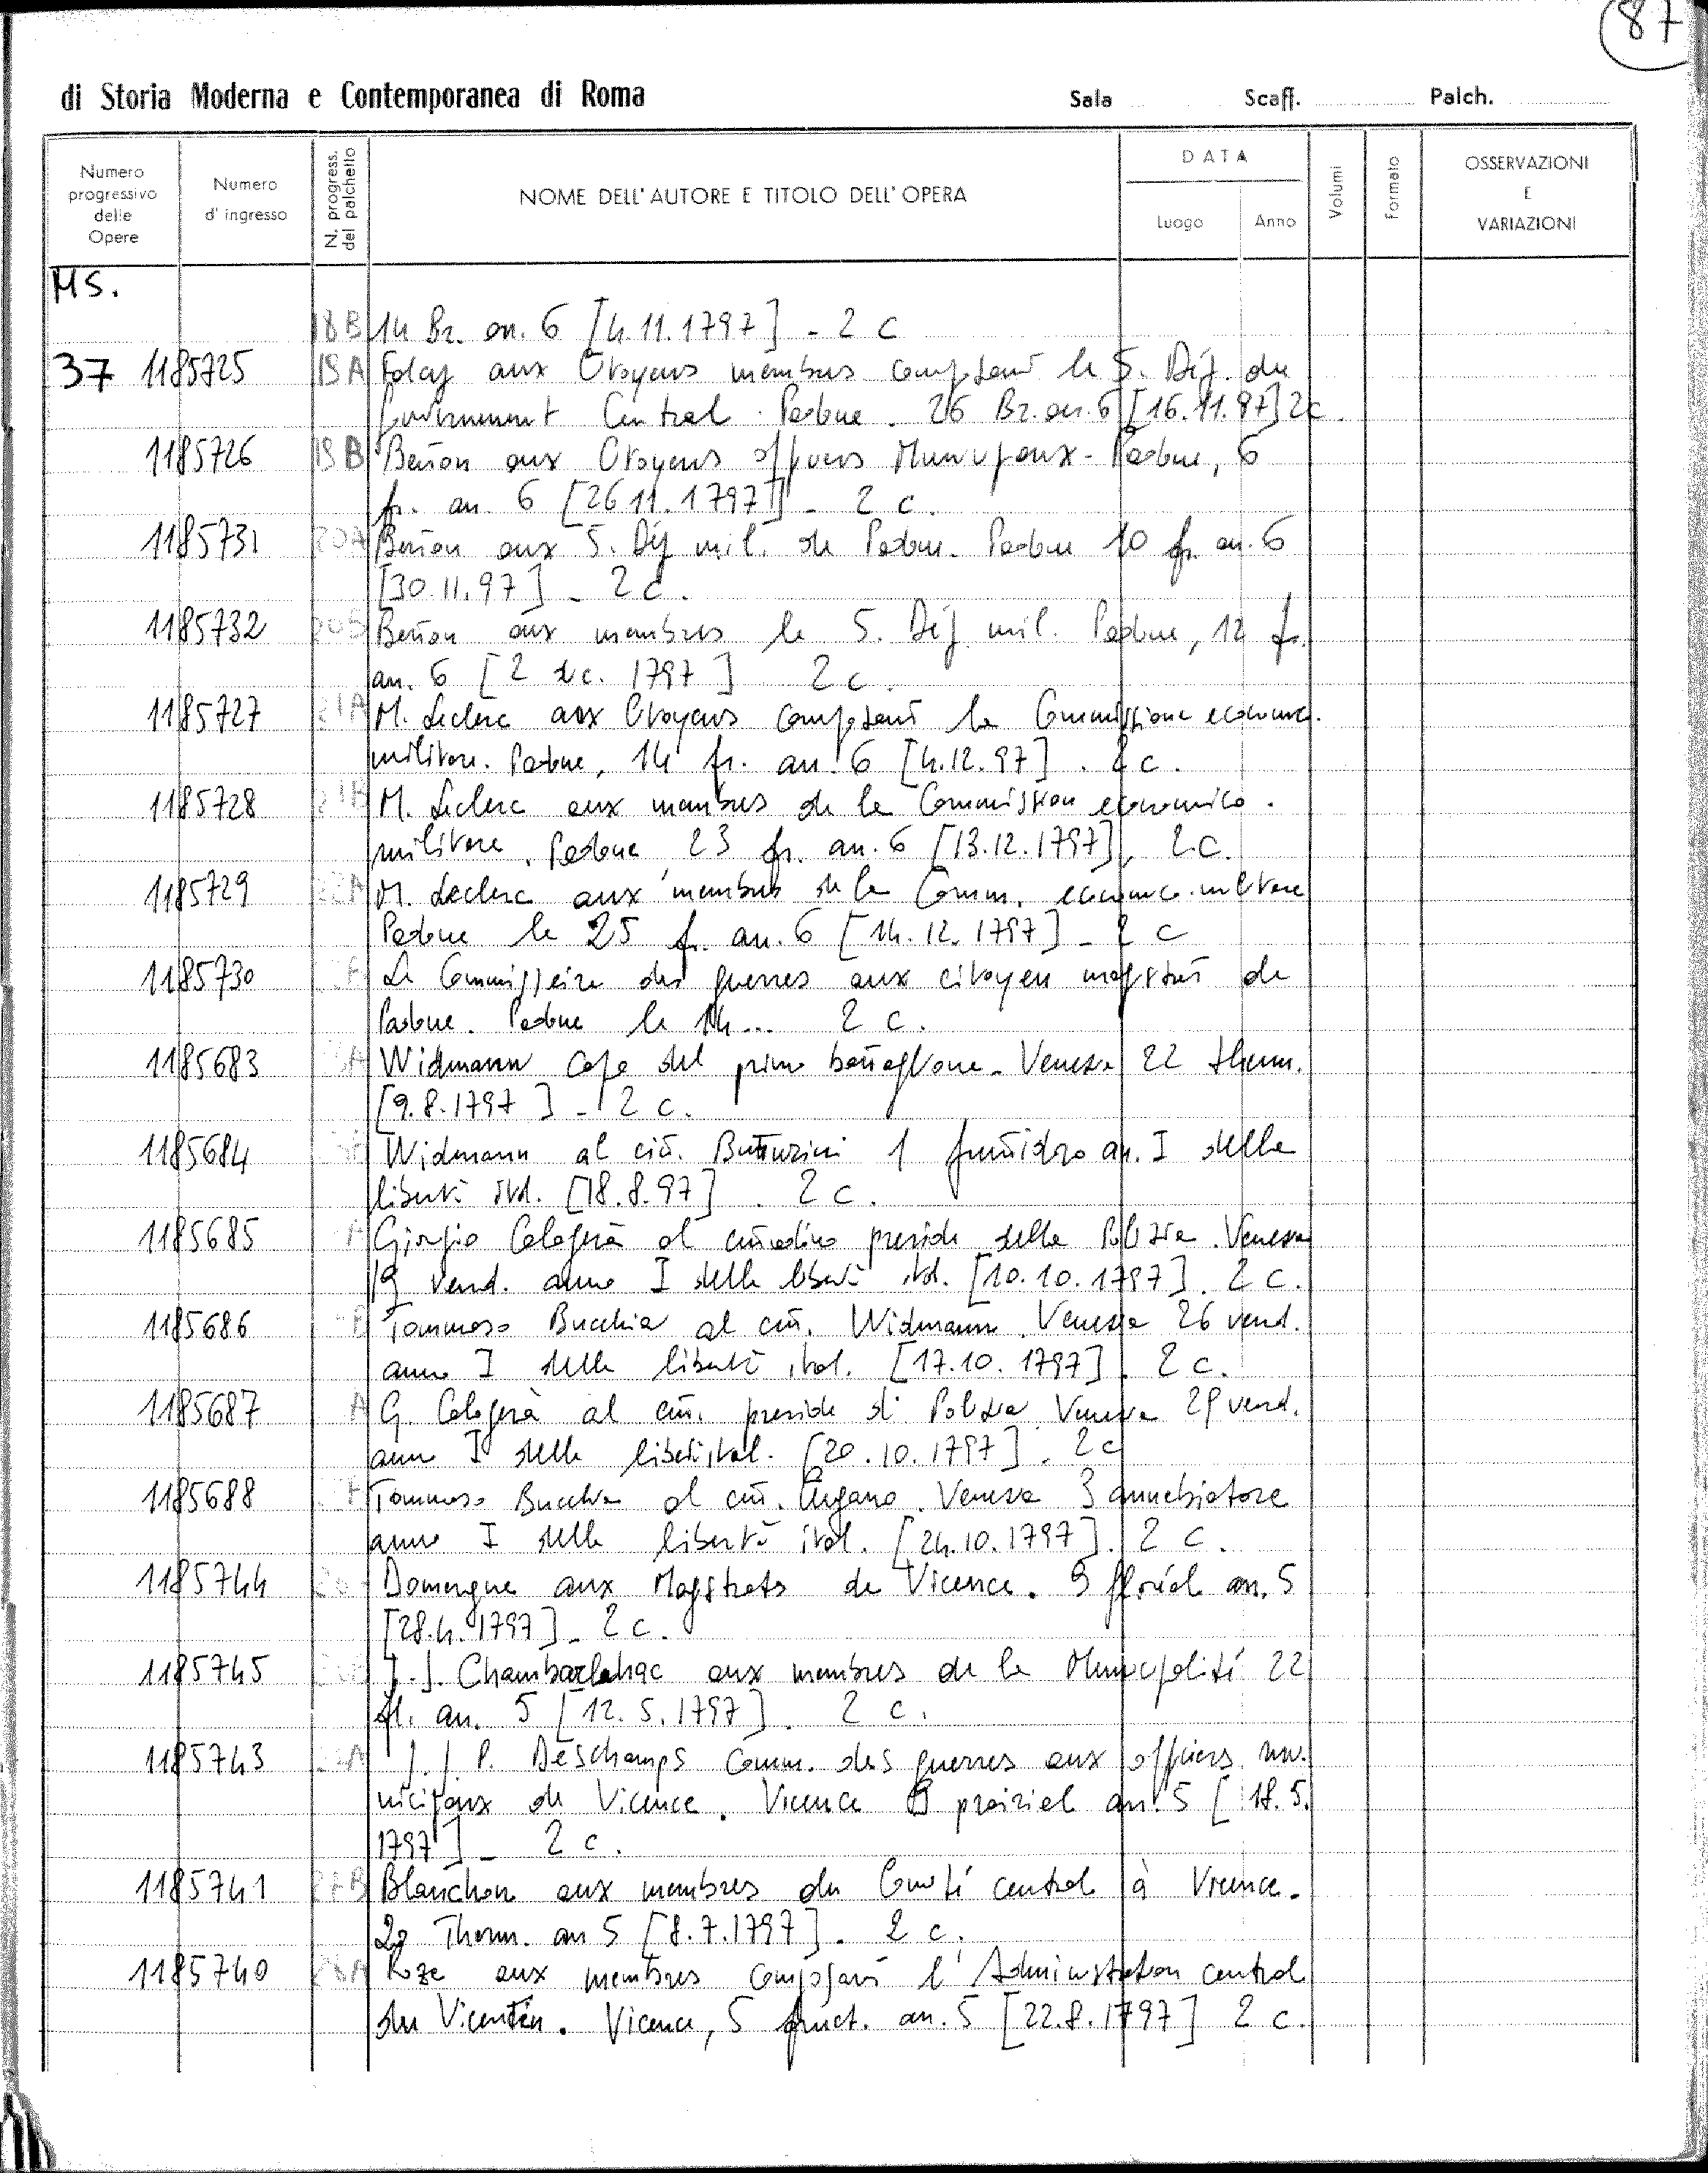 87
di Storia Moderna e Contemporanea di Roma Sala Scaff. Palch.
Numero progressivo delle Opere
Numero d' ingresso
N. progress. del palchetto
NOME DELL' AUTORE E TITOLO DELL' OPERA
DATA
Luogo
Anno
Volumi
Formato
OSSERVAZIONI E VARIAZIONI
MS.
18B 14 Br. an. 6 [4.11.1797] - 2 c
37 1185725 19A aux Citoyens membres composant le 5. Dép. du
Gouvernement Central. Padoue. 26 Br. an. 6 [16.11.97] 2c.
1185726 19B aux Citoyens officiers Municipaux - Padoue, 6
fr. an 6 [26.11.1797] - 2 c.
1185731 20A aux 5. Dép mil. de Padoue. Padoue 10 fr. an. 6
[30.11.97] - 2 c.
1185732 20B aux membres le 5. Dép mil. Padoue, 12 fr.
an. 6 [2 dec. 1797] 2 c.
1185727 21A M. Leclerc aux Citoyens composant la Commissione econom.
militare. Padoue, 14 fr. an. 6 [4.12.97]. 2 c.
1185728 21B M. Leclerc aux membres de la Commission economico.
militare. Padoue 23 fr. an. 6 [13.12.1797]. 2 c.
1185729 22A M. Leclerc aux membres de la Comm. economico-militare
Padoue le 25 fr. an. 6 [14.12.1797] - 2 c
1185730 Le Commissaire des guerres aux citoyen magistrats de
Padoue. Padoue le 14... 2 c.
1185683 A Widmann Capo del primo battaglione - Venezia 22 therm.
[9.8.1797] - 2 c.
1185684 Widmann al citt. Butturini 1 fruttidoro an. I della
libertà ital. [18.8.97]. 2 c.
1185685 A Giorgio Calogerà al cittadino preside della Polizia. Venezia
19 vend. anno I della libertà ital. [10.10.1797]. 2 c.
1185686 B Tommaso Bucchia al citt. Widmann. Venezia 26 vend.
anno I della libertà ital. [17.10.1797]. 2 c.
1185687 A G. Calogerà al citt. preside di Polizia Venezia 29 vend.
anno I della libertà ital. [20.10.1797]. 2 c
1185688 Tommaso Bucchia al citt. Venezia 3 annebiatore
anno I della libertà ital. [24.10.1797]. 2 c.
1185744 Domergue aux Magistrats de Vicence. 9 floréal an. 5
[28.4.1797] - 2 c.
1185745 J.J. Chambarlahac aux membres de la Municipalité 22
fl. an. 5 [12.5.1797]. 2 c.
1185743 A J.J.P. Deschamps Comm. des guerres aux officiers mu-
nicipaux de Vicence. Vicence prairial an. 5 [18.5.
1797] - 2 c.
1185741 27B Blanchon aux membres du Comité central à Vicence.
20 Therm. an 5 [8.7.1797]. 2 c.
1185740 28A Roze aux membres composant l'Administration central
du Vicentin. Vicence, 5 fruct. an. 5 [22.8.1797] 2 c.